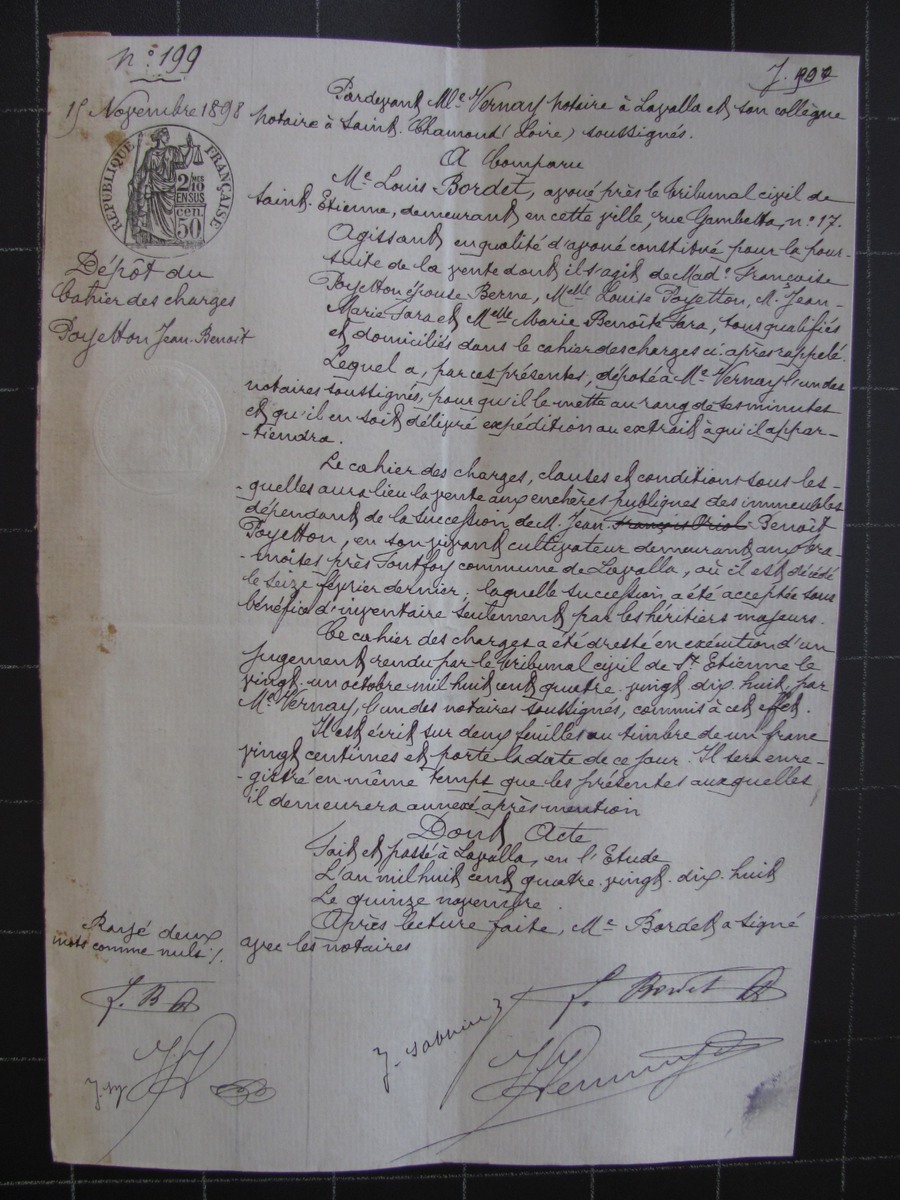 n° 199
15 Novembre 1898
RÉPUBLIQUE FRANÇAISE
2/10 EN SUS
50 cen.
Dépôt du
Cahier des charges
Poyetton Jean-Benoît
Pardevant Me Vernay notaire à Lavalla et son collègue
notaire à Saint-Chamond (Loire) soussignés.
A Comparu
Me Louis Bordet, avoué près le tribunal civil de
Saint-Etienne, demeurant en cette ville, rue Gambetta, n° 17.
Agissant en qualité d'avoué constitué pour la pour-
suite de la vente dont il s'agit de Made Françoise
Poyetton épouse Berne, Melle Louise Poyetton, M. Jean-
Marie Fara et Melle Marie Benoîte Fara, tous qualifiés
et domiciliés dans le cahier des charges ci-après rappelé.
Lequel a, par ces présentes, déposé à Me Vernay l'un des
notaires soussignés, pour qu'il le mette au rang de ses minutes
et qu'il en soit délivré expédition ou extrait à qui il appar-
-tiendra.
Le cahier des charges, clauses et conditions sous les-
-quelles aura lieu la vente aux enchères publiques des immeubles
dépendant de la succession de M. Jean François Benoît
Poyetton, en son vivant cultivateur demeurant aux
près Fontfoy commune de Lavalla, où il est décédé
le seize février dernier; laquelle succession a été acceptée sous
bénéfice d'inventaire seulement par les héritiers majeurs.
Ce cahier des charges a été dressé en exécution d'un
jugement rendu par le tribunal civil de St Etienne le
vingt-un octobre mil huit cent quatre-vingt-dix-huit, par
Me Vernay, l'un des notaires soussignés, commis à cet effet.
Il est écrit sur deux feuilles au timbre de un franc
vingt centimes et porte la date de ce jour. Il sera enre-
-gistré en même temps que les présentes auxquelles
il demeurera annexé après mention
Dont Acte
Fait et passé à Lavalla, en l'Etude
L'an mil huit cent quatre-vingt-dix-huit
Le quinze novembre.
Après lecture faite, Me Bordet a signé
avec les notaires
Rayé deux
mots comme nuls /.
L. B
L. Bordet